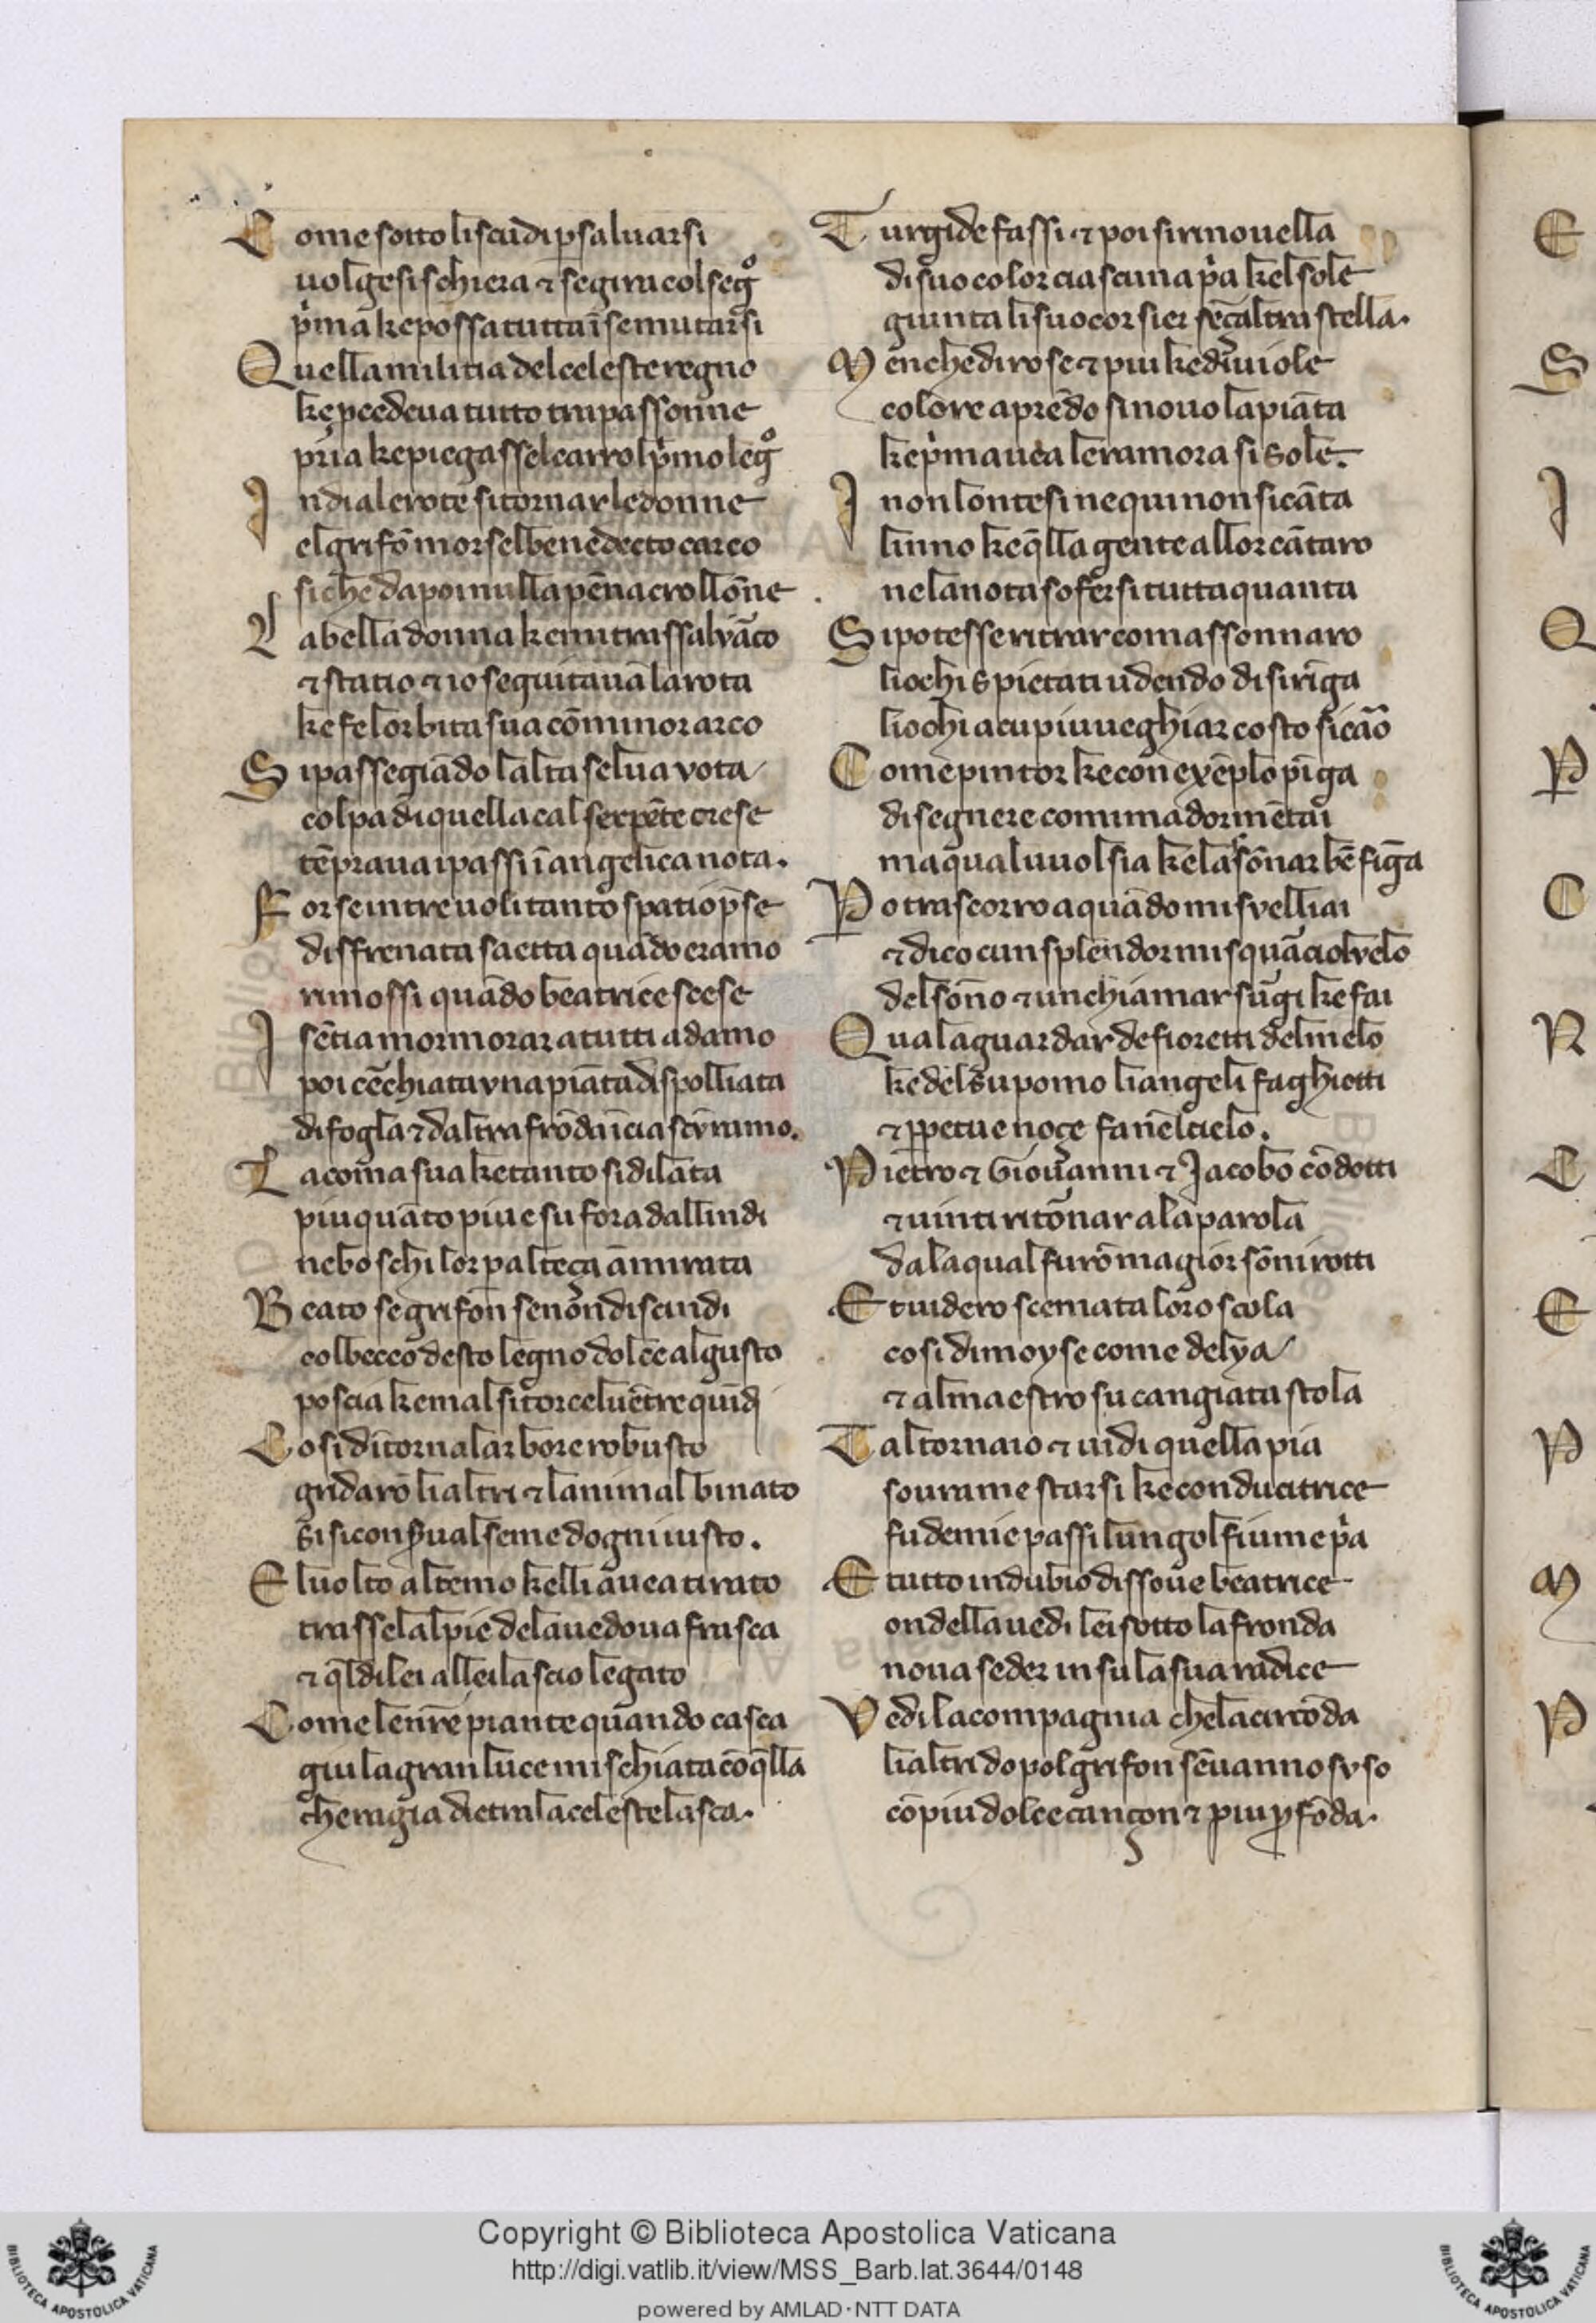 Come sotto li scudi p saluarsi
uolgesi schiera ⁊ se gira col segº
pͥma ke possa tutta ī se mutarsi
Quella militia del celeste regno
ke pcedeua tutto trapassonne
pͥia ke piegasse le carro lpͥmo legº
Indi a le rote si tornar le donne
el grifō mosse l benedecto carco
si che da poi nulla pēna crollōne
La bella donna ke mi trasse al vāco
⁊ statio ⁊ io seguitauā la rota
ke fe lorbita sua cō minor arco
Si passegiādo lalta selua vota
colpa di quella cal serpēte crese
tēpraua i passi ī angelica nota.
Forse in tre uoli tanto spatio p̄se
disfrenata saetta quādo eramo
rimossi quādo beatrice scese
I sēti a mormorar a tutti adamo
poi cēchiata vna piāta dispolliata
di fogla ⁊ daltra frōda ī ciascū ramo.
La coma sua ke tanto si dilata
piu quāto piu e su fora dallindi
ne boschi lor p alteça āmirata
Beato se grifon se nōn discindi
col becco desto legno dolce al gusto
poscia ke mal si torce luētre quidi
Cosi dītorn al arbore robusto
gridarō li altri ⁊ lanimal binato
si si conserua l seme dogni iusto.
E luolto al temo kelli auea tirato
trasselal pie de la uedoua frasca
⁊ ql di lei allei lascio legato
Come le nr̄e piante quando casca
giu la gran luce mischiata cō qlla
che ragia dietra la celeste lasca.
Turgide fassi ⁊ poi si rinouella
di suo color ciascuna pͥa kel sole
giunta li suo corsier socͣ altra stella.
Men che di rose ⁊ piu ke di uiole
colore aprēdo si nouo la piāta
ke pͥma uea le ramora si sole.
I non lontesi ne qui non si cāta
linno ke qlla gente allor cātaro
ne la nota sofersi tutta quanta
Si potesse ritrar com assonnaro
li ochi spietati udendo di siriga
li ochi a cu piu ueghiar costo si cāo
Come pintor ke con exēplo pīga
disegnere com i madormētai
ma qual uuol sia ke lasōnar bē figa
Po trascorro a quādo mi svelliai
⁊ dico cun splendor mi squācio l velo
del sōno ⁊ un chiamar surgi ke fai
Qual a guardar de fioretti del melo
ke del su pomo li angeli fa ghiotti
⁊ ppetue noçe fa nel cielo.
Pietro ⁊ Giouanni ⁊ Jacobo cōdotti
⁊ uinti ritōnar a la parola
da la qual furō magior sōni rotti
E tuidero scemata loro scola
cosi di moyse come delya
⁊ al maestro su cangiata stola
Tal tornaio ⁊ uidi quella pia
soura me starsi ke conducitrice
fu de mie passi lungo l fiume pͥa
E tutto in dubio disso ue beatrice
ondella uedi lei sotto la fronda
noua seder in su la sua radice
Vedi la compagnia che la circōda
li altri dopo l grifon sē uanno svso
cō piu dolce cançon ⁊ piu pfōda.
Copyright © Biblioteca Apostolica Vaticana
http://digi.vatlib.it/view/MSS_Barb.lat.3644/0148
powered by AMLAD·NTT DATA